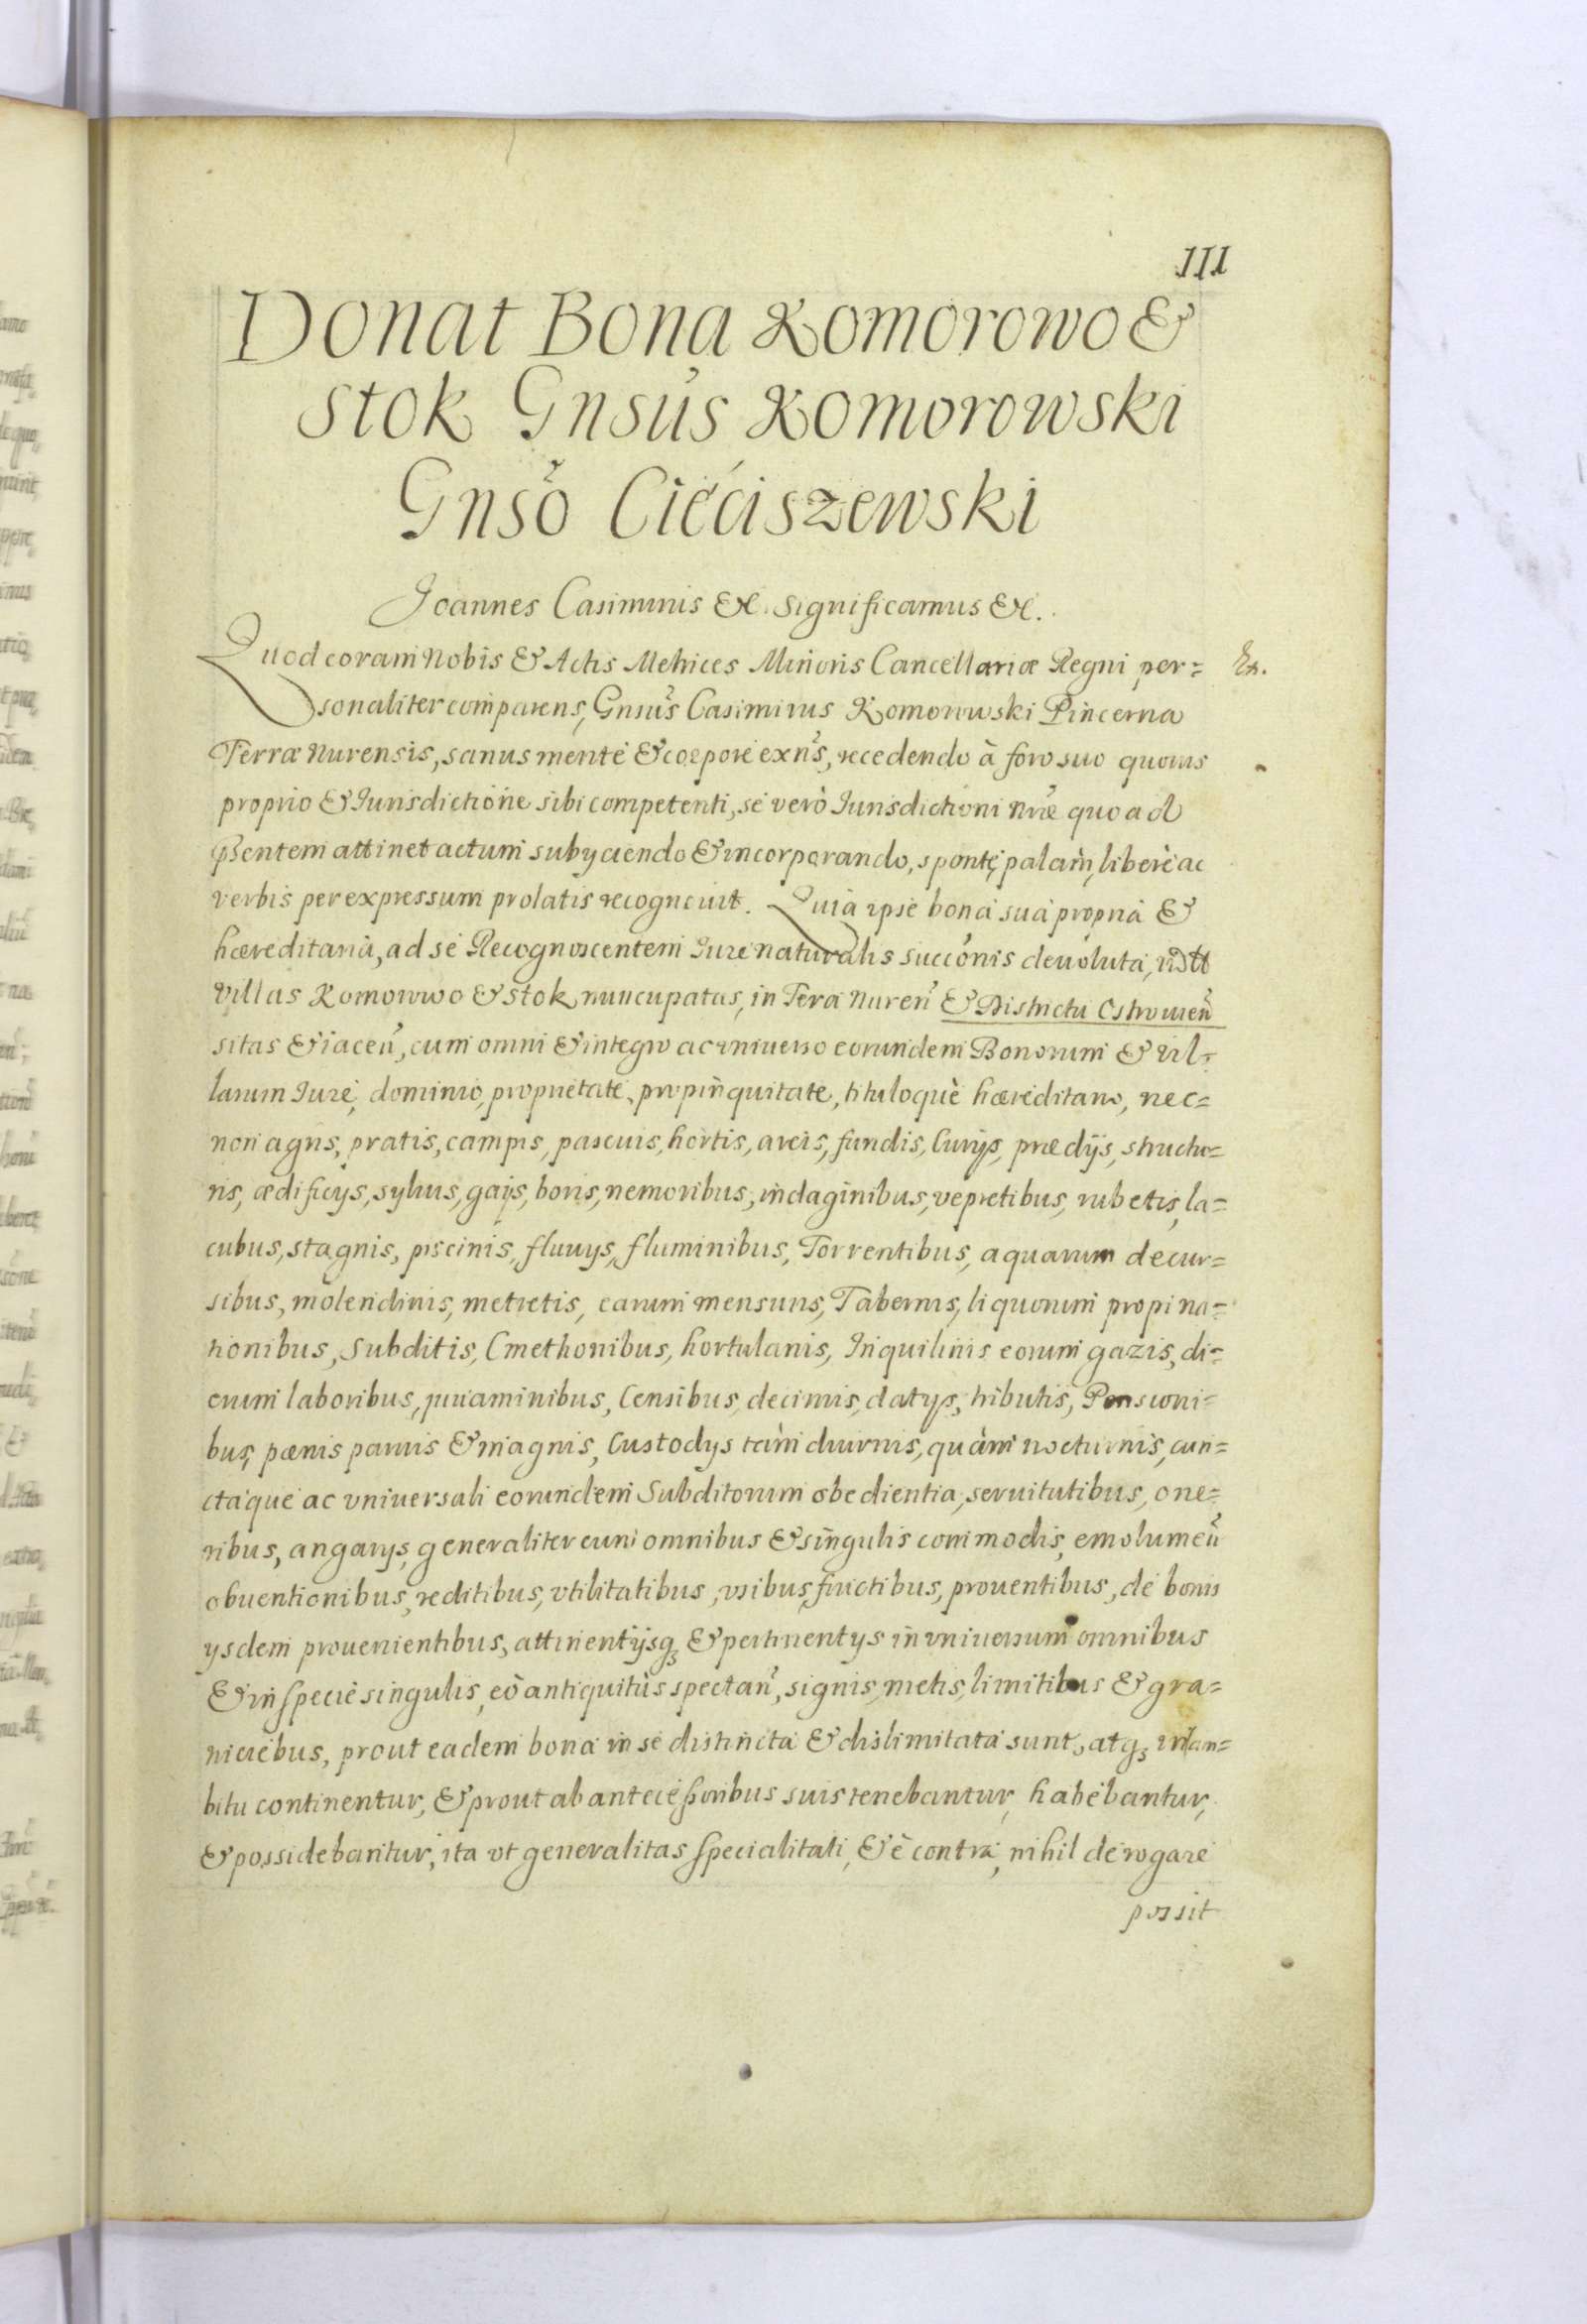 111
Donat Bona Komorowo &
Stok Gnsus Komorowski
Gnso Cieciszewski
Joannes Casimirus &c. Significamus &c.
Quod coram Nobis & Actis Metrices Minoris Cancellariæ Regni per= Ex.
sonaliter comparens, Gnsus Casimirus Komorowski Pincerna
Terræ Nurensis, sanus mente & corpore exns, recedendo à foro suo quouis
proprio & Iurisdictione sibi competenti, se verò Iurisdictioni nræ quo ad
pñsentem attinet actum subyciendo & incorporando, sponte, palàm, liberè ac
verbis per expressum prolatis recognouit. Quia ipse bona sua propria &
hæreditaria, ad se Recognoscentem Iure naturalis succonis deuoluta, ndtt
villas Komorowo & Stok nuncupatas, in Terra Nuren & Districtu Ostrouien
sitas & iacen, cum omni & integro ac vniuerso eorundem Bonorum & Vil=
larum Iure, dominio, proprietate, propinquitate, tituloque hæreditario, nec=
non agris, pratis, campis, pascuis, hortis, areis, fundis, Curijs, prædijs, structu=
ris, ædificys, syluis, gaijs, boris, nemoribus, indaginibus, vepretibus, rubetis, la=
cubus, stagnis, piscinis, fluuys, fluminibus, Torrentibus, aquarum decur=
sibus, molendinis, metretis, earum mensuris, Tabernis, liquorum propina=
tionibus, Subditis, Cmethonibus, hortulanis, Inquilinis eorum gazis, di=
erum laboribus, iuuaminibus, Censibus, decimis, datys, tributis, Pensioni=
bus, pænis paruis & magnis, Custodys tàm diurnis, quàm nocturnis, cun=
ctaque ac vniuersali eorundem Subditorum obedientia, seruitutibus, one=
ribus, angarys, generaliter cum omnibus & singulis commodis, emolumen
obuentionibus, reditibus, vtilitatibus, vsibus, fructibus, prouentibus, de bonis
ysdem prouenientibus, attinentijsq & pertinentys in vniuersum omnibus
& in specie singulis, eò antiquitùs spectan, signis, metis, limitibus & gra=
niciebus, prout eadem bona in se distincta & dislimitata sunt, atq in am=
bitu continentur, & prout ab antecessoribus suis tenebantur, habebantur,
& possidebantur, ita vt generalitas specialitati, & è contra, nihil derogare
possit